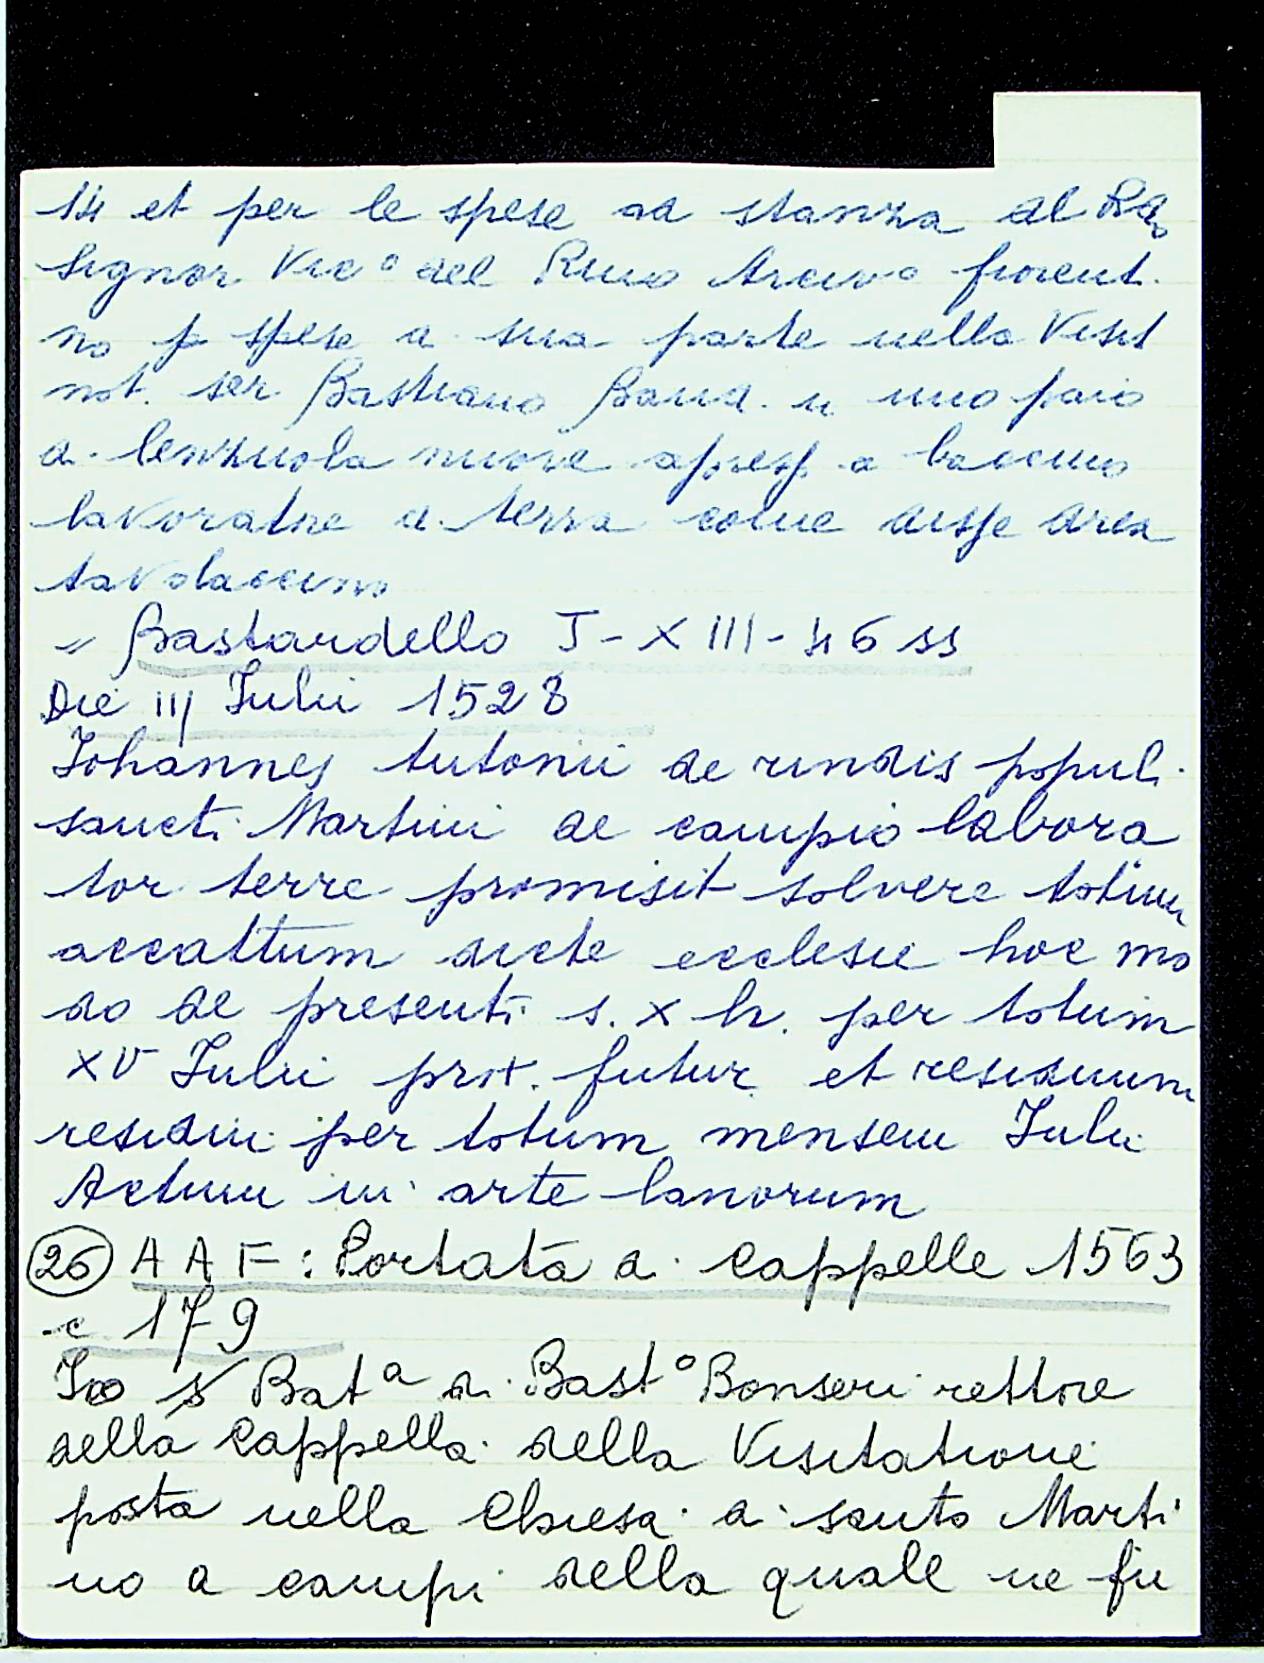 14 et per le spese ad stanza del Rdo
Signor Vico del Rmo Arcivo fiorent.
no p spese a sua parte nella Visit
not. ser Bastiano Band. n uno paio
d. lenzuola nuove apresj. a baccino
lavoratne d. terra come disse Area
tavolaccino
" Bastardello I-XIII-46 ss
Die iij Iulii 1528
Johannes Antonii de rindis popul.
sancti Martini de campio labora
tor terre promisit solvere totum
accattum dicte ecclesie hoc mo
do de presenti s. x h. per totum
XV Iulii prox. futur. et residuum
residui per totum mensem Iulii
Actum in arte lanorum
26 AAF: Portata d. Cappelle 1563
c 179
Io s Bata di Basto Bonseri rettore
della Cappella della Visitatione
posta nella Chiesa di santo Marti
no a campi della quale ne fu